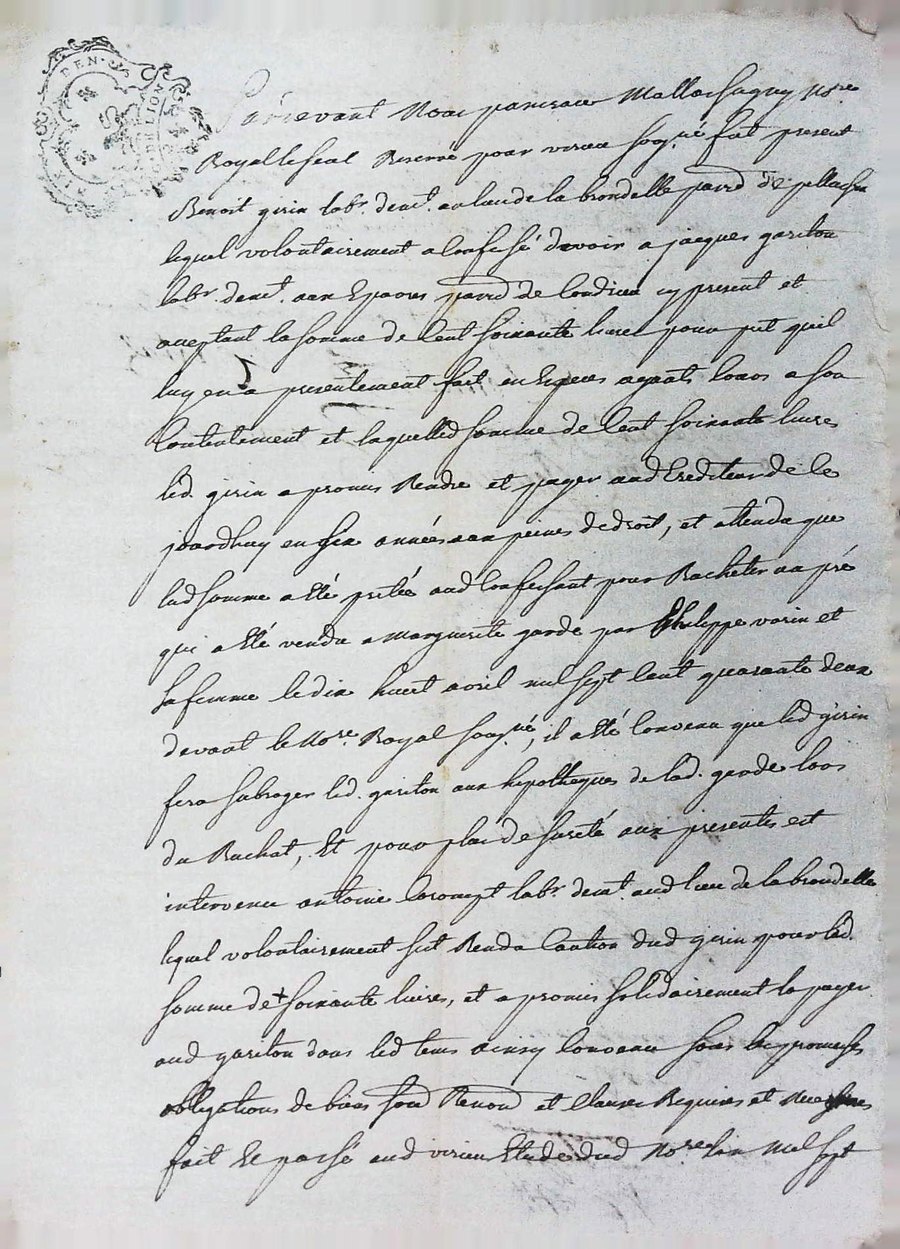 DEN.
Pardevant Nous pancrace Mallassagny No.re
Royal le seal Reservé pour virieu soq.né fut present
Benoit girin lab.r dem.t au lieu de la brondelle parr.d de pellussin
lequel volontairement a Confessé devoir a jacques gariton
lab.r dem.t aux Eparres parr.d de Condrieu cy present et
aceptant la somme de Cent soixante livres pour pret quil
luy en a presentement fait en Especes ayants Cours a son
Contentement et laquelled somme de Cent soixante livres
led. girin a promis Rendre et payer aud Crediteur de Ce
jourdhuy en six années aux peines de droit, et attendu que
lad somme a Eté pretée aud Confessant pour Racheter un pré
qui a Eté vendu a Marguerite garde par Philippe varin et
sa femme le dix huit avril mil sept Cent quarante deux
devant le No.re Royal soq.né, il a Eté Convenu que led girin
fera subroger led. gariton aux hipotheques de lad. garde lors
du Rachat, Et pour plus de sureté aux presentes est
intervenu antoine Corompt lab.r dem.t aud lieu de la brondelle
lequel volontairement s'est Rendu Caution dud girin pour lad.
somme de + soixante livres, et a promis solidairement la payer
aud gariton dans led tems ainsy Convenu sous les promesses
obligations de biens soud Renon et Clauses Requises et
fait Et passé aud virieu Etude dud No.re L'an Mil sept